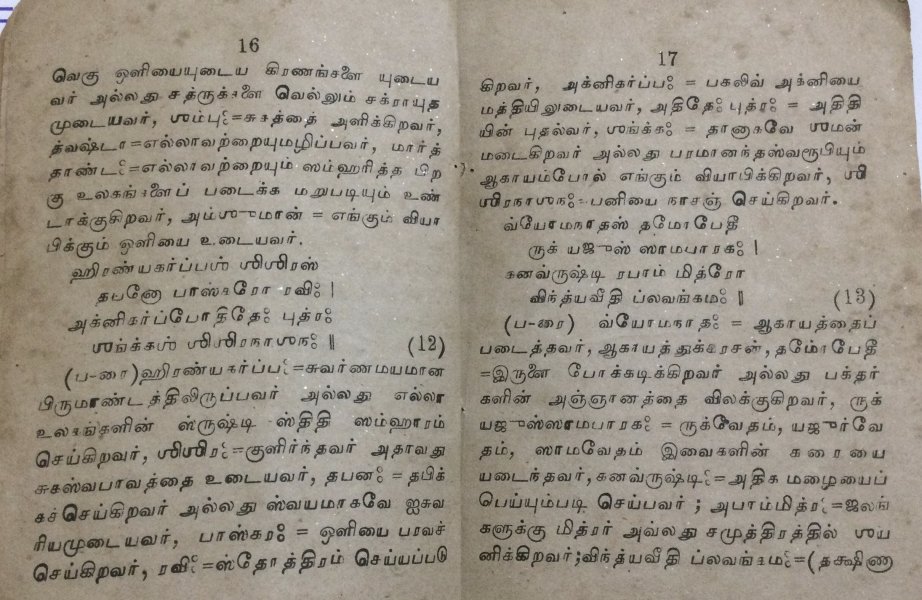 16
வெகு ஒளியையுடைய கிரணங்களை யுடைய
வர் அல்லது சத்ருக்களை வெல்லும் சக்ராயுத
முடையவர், ஶம்புஃ=சுகத்தை அளிக்கிறவர்,
த்வஷ்டா=எல்லாவற்றையுமழிப்பவர், மார்த்
தாண்டஃ=எல்லாவற்றையும் ஸம்ஹரித்த பிற
கு உலகங்களைப் படைக்க மறுபடியும் உண்
டாக்குகிறவர், அம்ஶுமான் = எங்கும் வியா
பிக்கும் ஒளியை உடையவர்.
ஹிரண்யகர்ப்பஶ் ஶிஶிரஸ்
தபனோ பாஸ்கரோ ரவிஃ |
அக்னிகர்ப்போதிதேஃ புத்ரஃ
ஶங்க்கஶ் ஶிஶிரநாஶநஃ ‖ (12)
(ப-ரை)ஹிரண்யகர்ப்பஃ=சுவர்ணமயமான
பிருமாண்டத்திலிருப்பவர் அல்லது எல்லா
உலகங்களின் ஸ்ருஷ்டி ஸ்திதி ஸம்ஹாரம்
செய்கிறவர், ஶிஶிரஃ=குளிர்ந்தவர் அதாவது
சுகஸ்வபாவத்தை உடையவர், தபனஃ = தபிக்
கச்செய்கிறவர் அல்லது ஸ்வயமாகவே ஐசுவ
ரியமுடையவர், பாஸ்கரஃ = ஒளியை பரவச்
செய்கிறவர், ரவிஃ=ஸ்தோத்திரம் செய்யப்படு
17
கிறவர், அக்னிகர்ப்பஃ = பகலிவ் அக்னியை
மத்தியிலுடையவர், அதிதேஃ புத்ரஃ = அதிதி
யின் புதல்வர், ஶங்க்கஃ = தானாகவே ஶமன்
மடைகிறவர் அல்லது பரமானந்தஸ்வரூபியும்
ஆகாயம்போல் எங்கும் வியாபிக்கிறவர், ஶி
ஶிரநாஶநஃ=பனியை நாசஞ் செய்கிறவர்.
வ்யோமநாதஸ் தமோபேதீ
ருக் யஜுஸ் ஸாமபாரகஃ |
கனவ்ருஷ்டி ரபாம் மித்ரோ
விந்த்யவீதி ப்லவங்கமஃ ‖ (13)
(ப-ரை) வ்யோமநாதஃ = ஆகாயத்தைப்
படைத்தவர், ஆகாயத்துக்கரசன், தமோபேதீ
=இருளை போக்கடிக்கிறவர் அல்லது பக்தர்
களின் அஞ்ஞானத்தை விலக்குகிறவர், ருக்
யஜுஸ்ஸாமபாரகஃ = ருக்வேதம், யஜுர்வே
தம், ஸாமவேதம் இவைகளின் கரையை
யடைந்தவர், கனவ்ருஷ்டிஃ=அதிக மழையைப்
பெய்யும்படி செய்பவர் ; அபாம்மித்ரஃ=ஜலங்
களுக்கு மித்ரர் அவ்லது சமுத்திரத்தில் ஶய
னிக்கிறவர்;விந்த்யவீதி ப்லவங்கமஃ=(தக்ஷிண